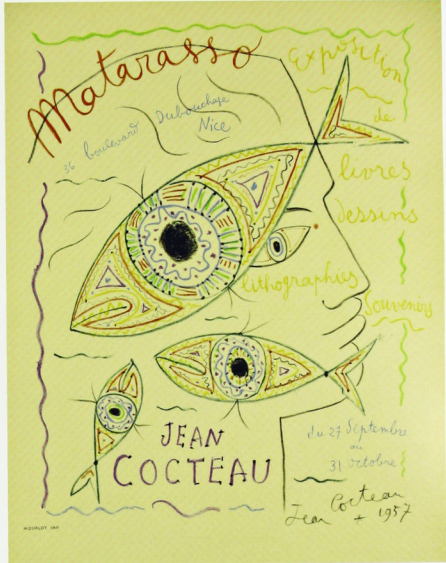 Matarasso
36 boulevard Dubouchage
Nice
Exposition
de
livres
dessins
lithographies
Souvenirs
JEAN
COCTEAU
du 27 Septembre
au
31 octobre
Jean Cocteau
1957
MOURLOT IMP